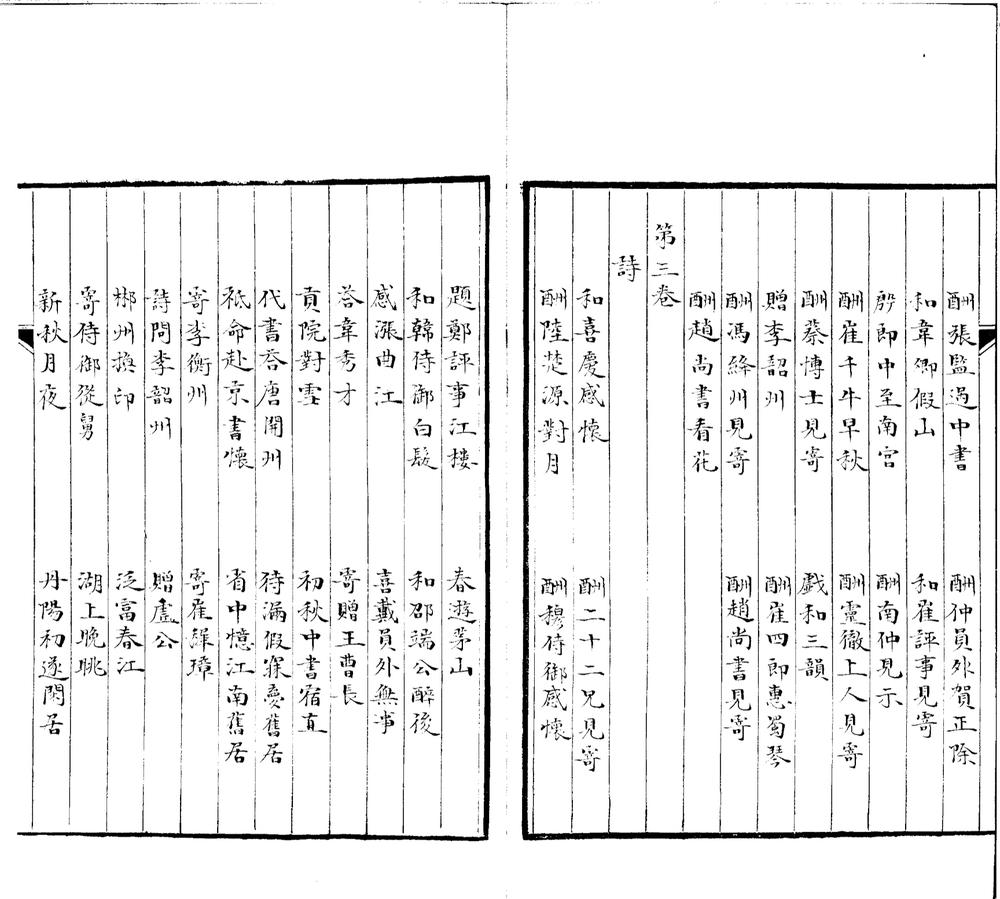 酬張監過中書 酬仲員外賀正除
和韋卿假山 和崔評事見寄
殷郎中至南宮 酬南仲見示
酬崔千牛早秋 酬靈徹上人見寄
酬蔡博士見寄 戲和三韻
贈李韶州 酬崔四郎惠蜀琴
酬馮絳州見寄 酬趙尚書見寄
酬趙尚書看花
第三卷
詩
和喜慶感懷 酬二十二兄見寄
酬陸楚源對月 酬穆侍御感懷
題鄭評事江樓 春遊茅山
和韓侍御白髮 和邵端公醉後
感漲曲江 喜戴員外無事
荅韋秀才 寄贈王曹長
貢院對雪 初秋中書宿直
代書荅唐開州 待漏假寐憂舊居
祗命赴京書懷 省中憶江南舊居
寄李衡州 寄崔緯璋
詩問李韶州 贈盧公
郴州換印 泛富春江
寄侍御從舅 湖上晚眺
新秋月夜 丹陽初遂閑居